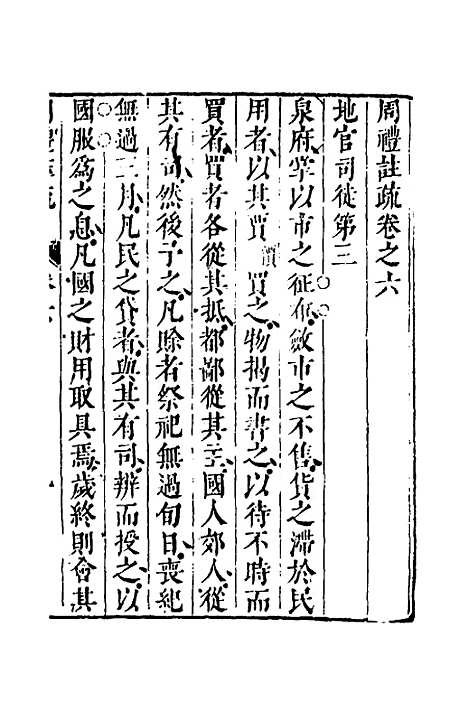 周禮註疏卷之六
地官司徒第三
泉府掌以市之征布斂市之不售貨之滯於民
用者以其賈價買之物揭而書之以待不時而
買者買者各從其抵都鄙從其主國人郊人從
其有司然後予之凡賒者祭祀無過旬日喪紀
無過三月凡民之貸者與其有司辨而授之以
國服爲之息凡國之財用取具焉歲終則會其